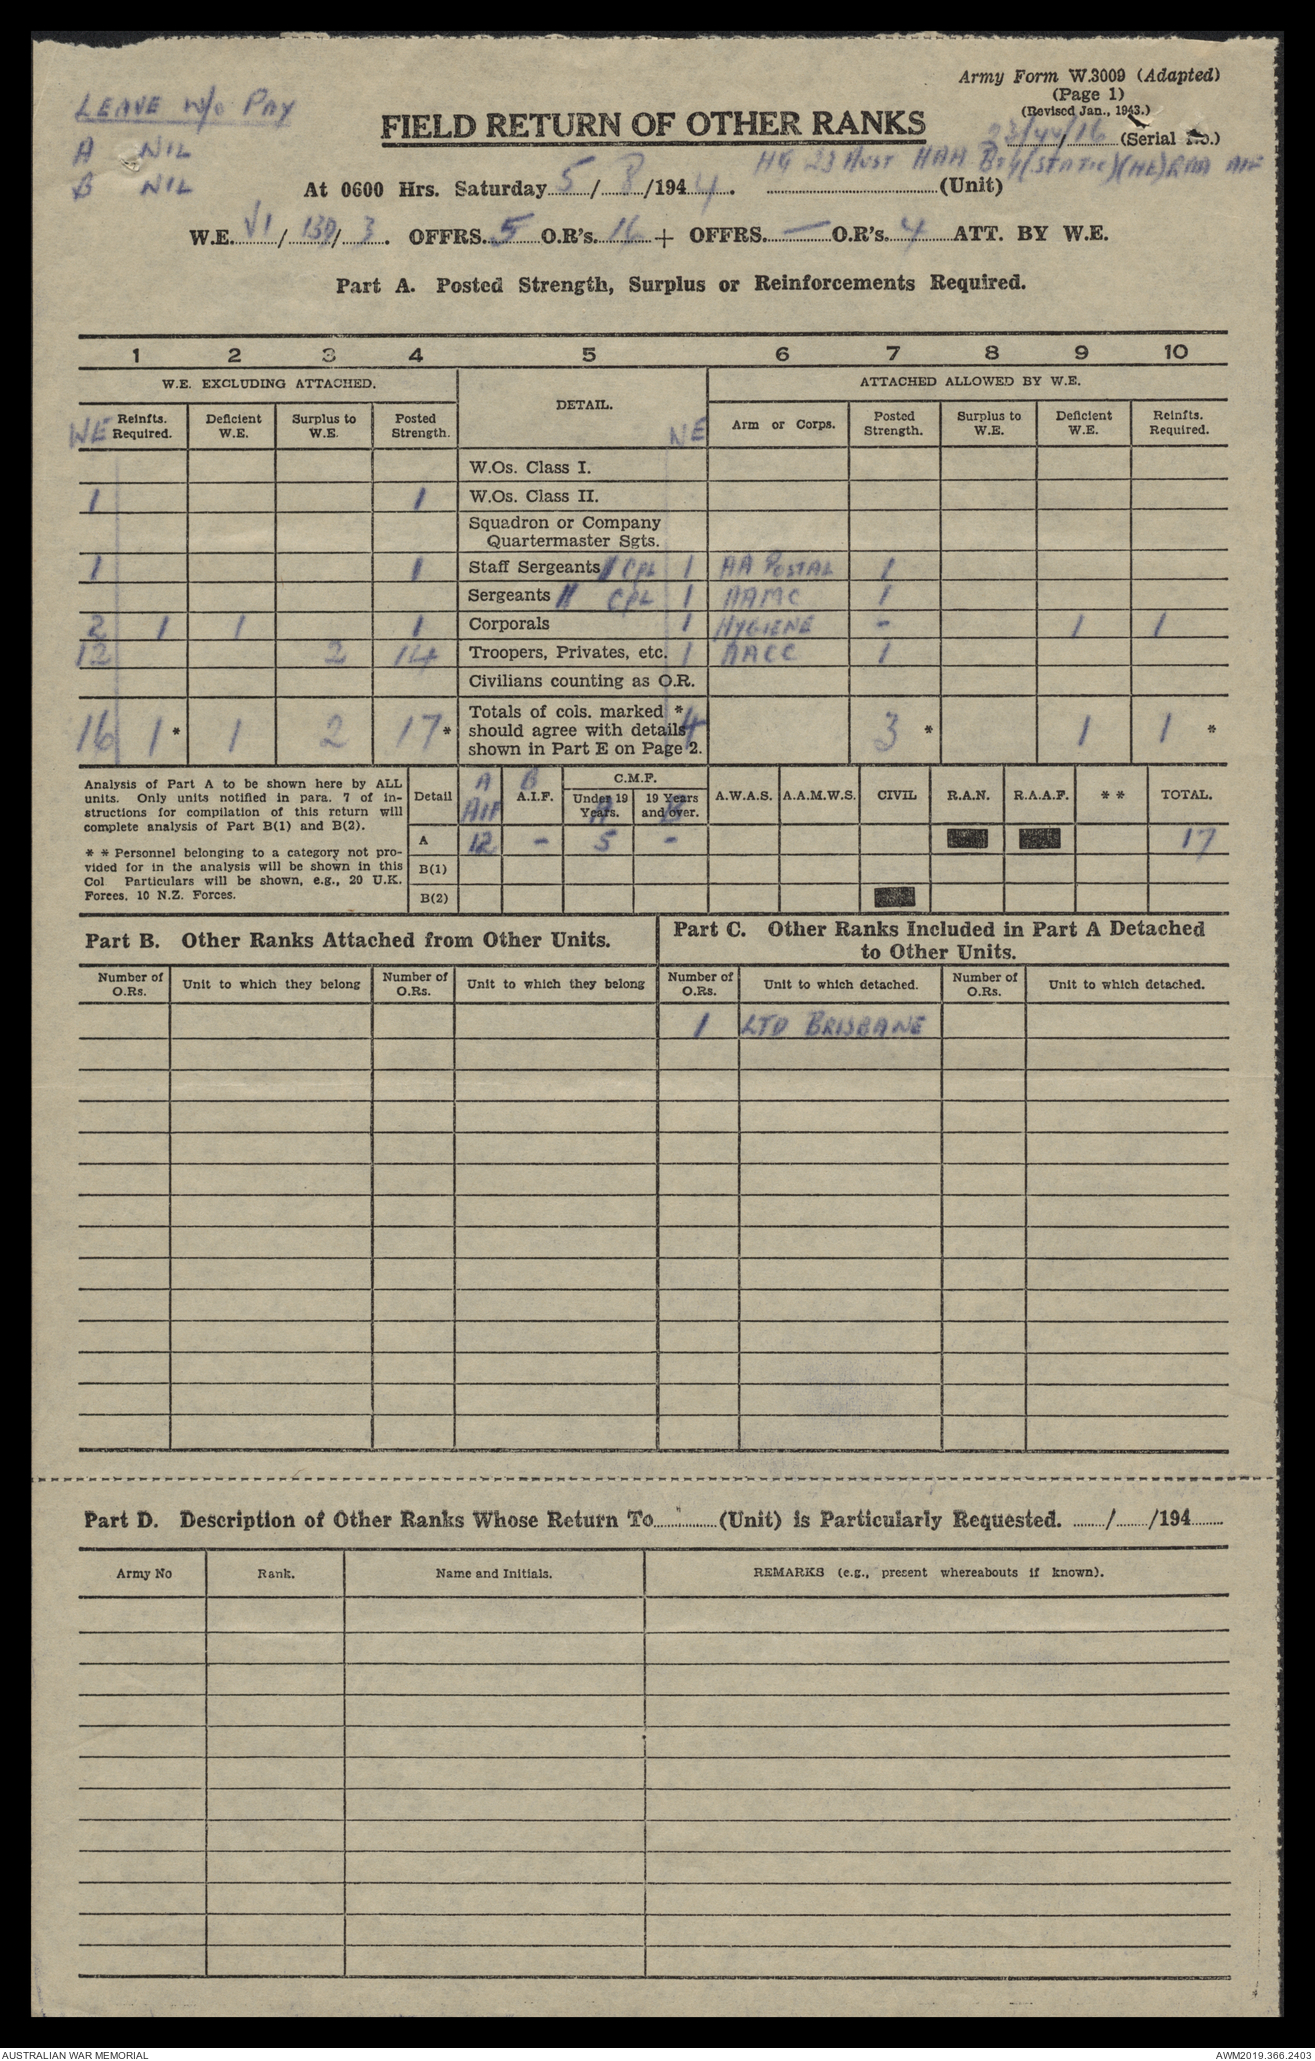 Army Form W.3009 (Adapted)
(Page 1)
(Revised Jan., 1943.)
LEAVE W/o PAY
A NIL
B NIL
FIELD RETURN OF OTHER RANKS
23/44/16 (Serial No.)
HQ 23 Aust HAA Bty (STATIC) RAA AIF
At 0600 Hrs. Saturday 5 / 8 /194 4. (Unit)
W.E. VI / 130 / 3. OFFRS. 5 O.R's. 16 + OFFRS. — O.R's. 4 ATT. BY W.E.
Part A. Posted Strength, Surplus or Reinforcements Required.
1 2 3 4 5 6 7 8 9 10
W.E. EXCLUDING ATTACHED. DETAIL. ATTACHED ALLOWED BY W.E.
WE Reinfts. Required. Deficient W.E. Surplus to W.E. Posted Strength. Arm or Corps. Posted Strength. Surplus to W.E. Deficient W.E. Reinfts. Required.
W.Os. Class I.
1 1 W.Os. Class II.
Squadron or Company
Quartermaster Sgts.
1 1 Staff Sergeants CPL 1 AA POSTAL 1
Sergeants CPL 1 AAMC 1
2 1 1 1 Corporals 1 HYGIENE - 1 1
12 2 14 Troopers, Privates, etc. 1 AACC 1
Civilians counting as O.R.
16 1 * 1 2 17 * Totals of cols. marked * should agree with details shown in Part E on Page 2. 4 3 * 1 1 *
Analysis of Part A to be shown here by ALL
units. Only units notified in para. 7 of in-
structions for compilation of this return will
complete analysis of Part B(1) and B(2).
* * Personnel belonging to a category not pro-
vided for in the analysis will be shown in this
Col Particulars will be shown, e.g., 20 U.K.
Forces, 10 N.Z. Forces.
Detail A AIF B A.I.F. C.M.F. Under 19 Years. A 19 Years and over. B A.W.A.S. A.A.M.W.S. CIVIL R.A.N. R.A.A.F. * * TOTAL.
A 12 - 5 - 17
B(1)
B(2)
Part B. Other Ranks Attached from Other Units.
Part C. Other Ranks Included in Part A Detached
to Other Units.
Number of O.Rs. Unit to which they belong Number of O.Rs. Unit to which they belong Number of O.Rs. Unit to which detached. Number of O.Rs. Unit to which detached.
1 LTD BRISBANE
Part D. Description of Other Ranks Whose Return To (Unit) is Particularly Requested. / /194
Army No Rank. Name and Initials. REMARKS (e.g., present whereabouts if known).
AUSTRALIAN WAR MEMORIAL
AWM2019.366.2403